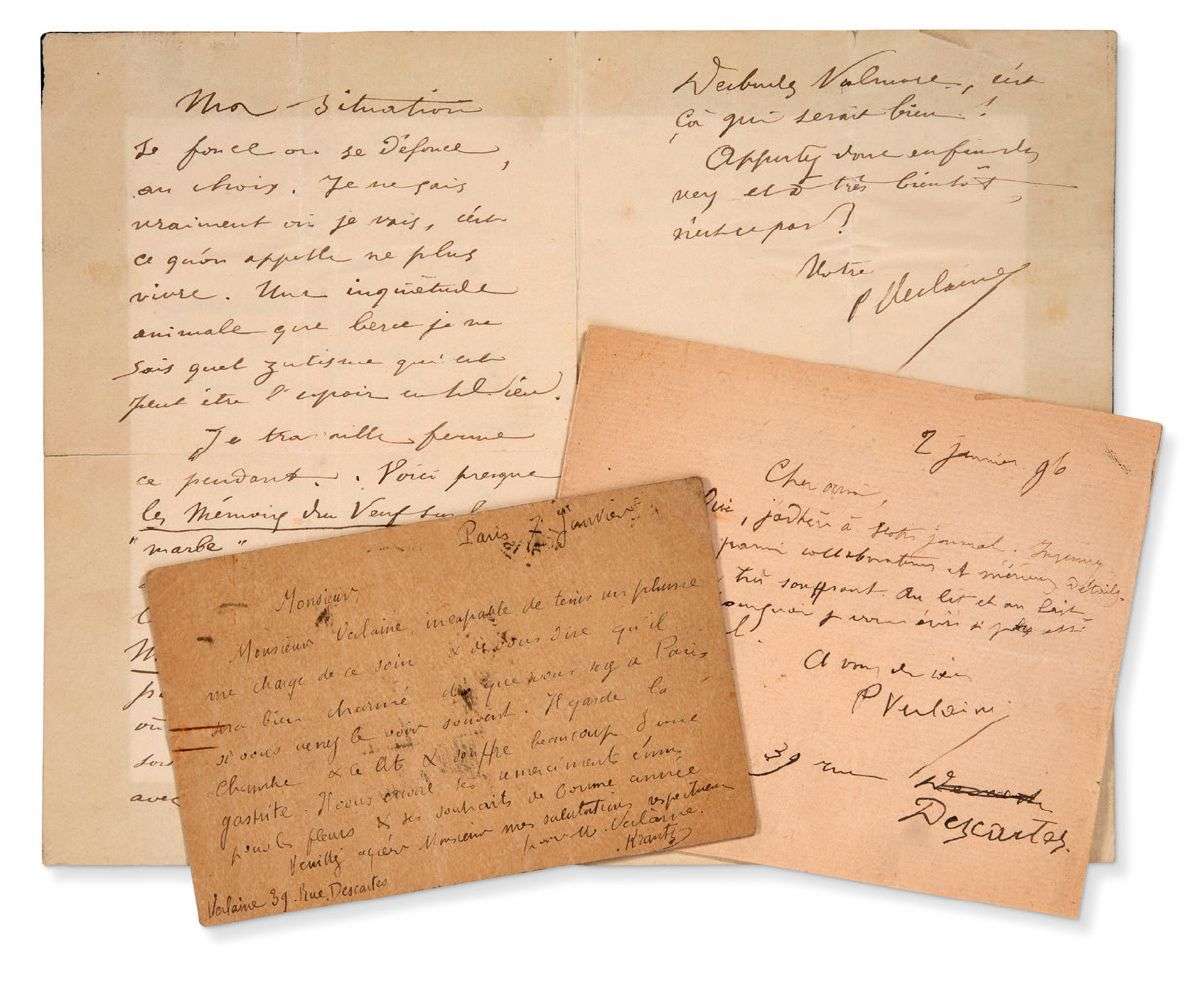 Ma situation
se fonce ou se défonce,
au choix. Je ne sais
vraiment où je vais, c'est
ce qu'on appelle ne plus
vivre. Une inquiétude
animale que berce je ne
sais quel zutisme qui est
peut être l'espoir en Dieu.
Je travaille ferme
cependant. Voici presque
les Mémoires d'un Veuf sur le
"marbe"
avec
Desbordes Valmore, c'est
ça qui serait bien!
Apportez donc enfin des
vers et à très bientôt,
n'est ce pas?
Votre
P Verlaine
2 janvier 96
Cher ami,
Oui, j'adhère à votre journal.
parmi collaborateurs et détails.
très souffrant. Au lit et au lait
pourquoi je vous écris si
A vous de
P Verlaine
39 rue
Descartes
Paris 1er Janvier
Monsieur,
Monsieur Verlaine, incapable de tenir une plume
me charge de ce soin & de vous dire qu'il
sera bien charmé que vous soyez à Paris
si vous venez le voir souvent. Il garde la
chambre & le lit & souffre beaucoup d'une
gastrite. Il vous envoie ses remerciements émus
pour les fleurs & ses souhaits de bonne année
Veuillez agréer Monsieur mes salutations respectueuses
pour M. Verlaine.
Krantz
Verlaine 39 Rue Descartes